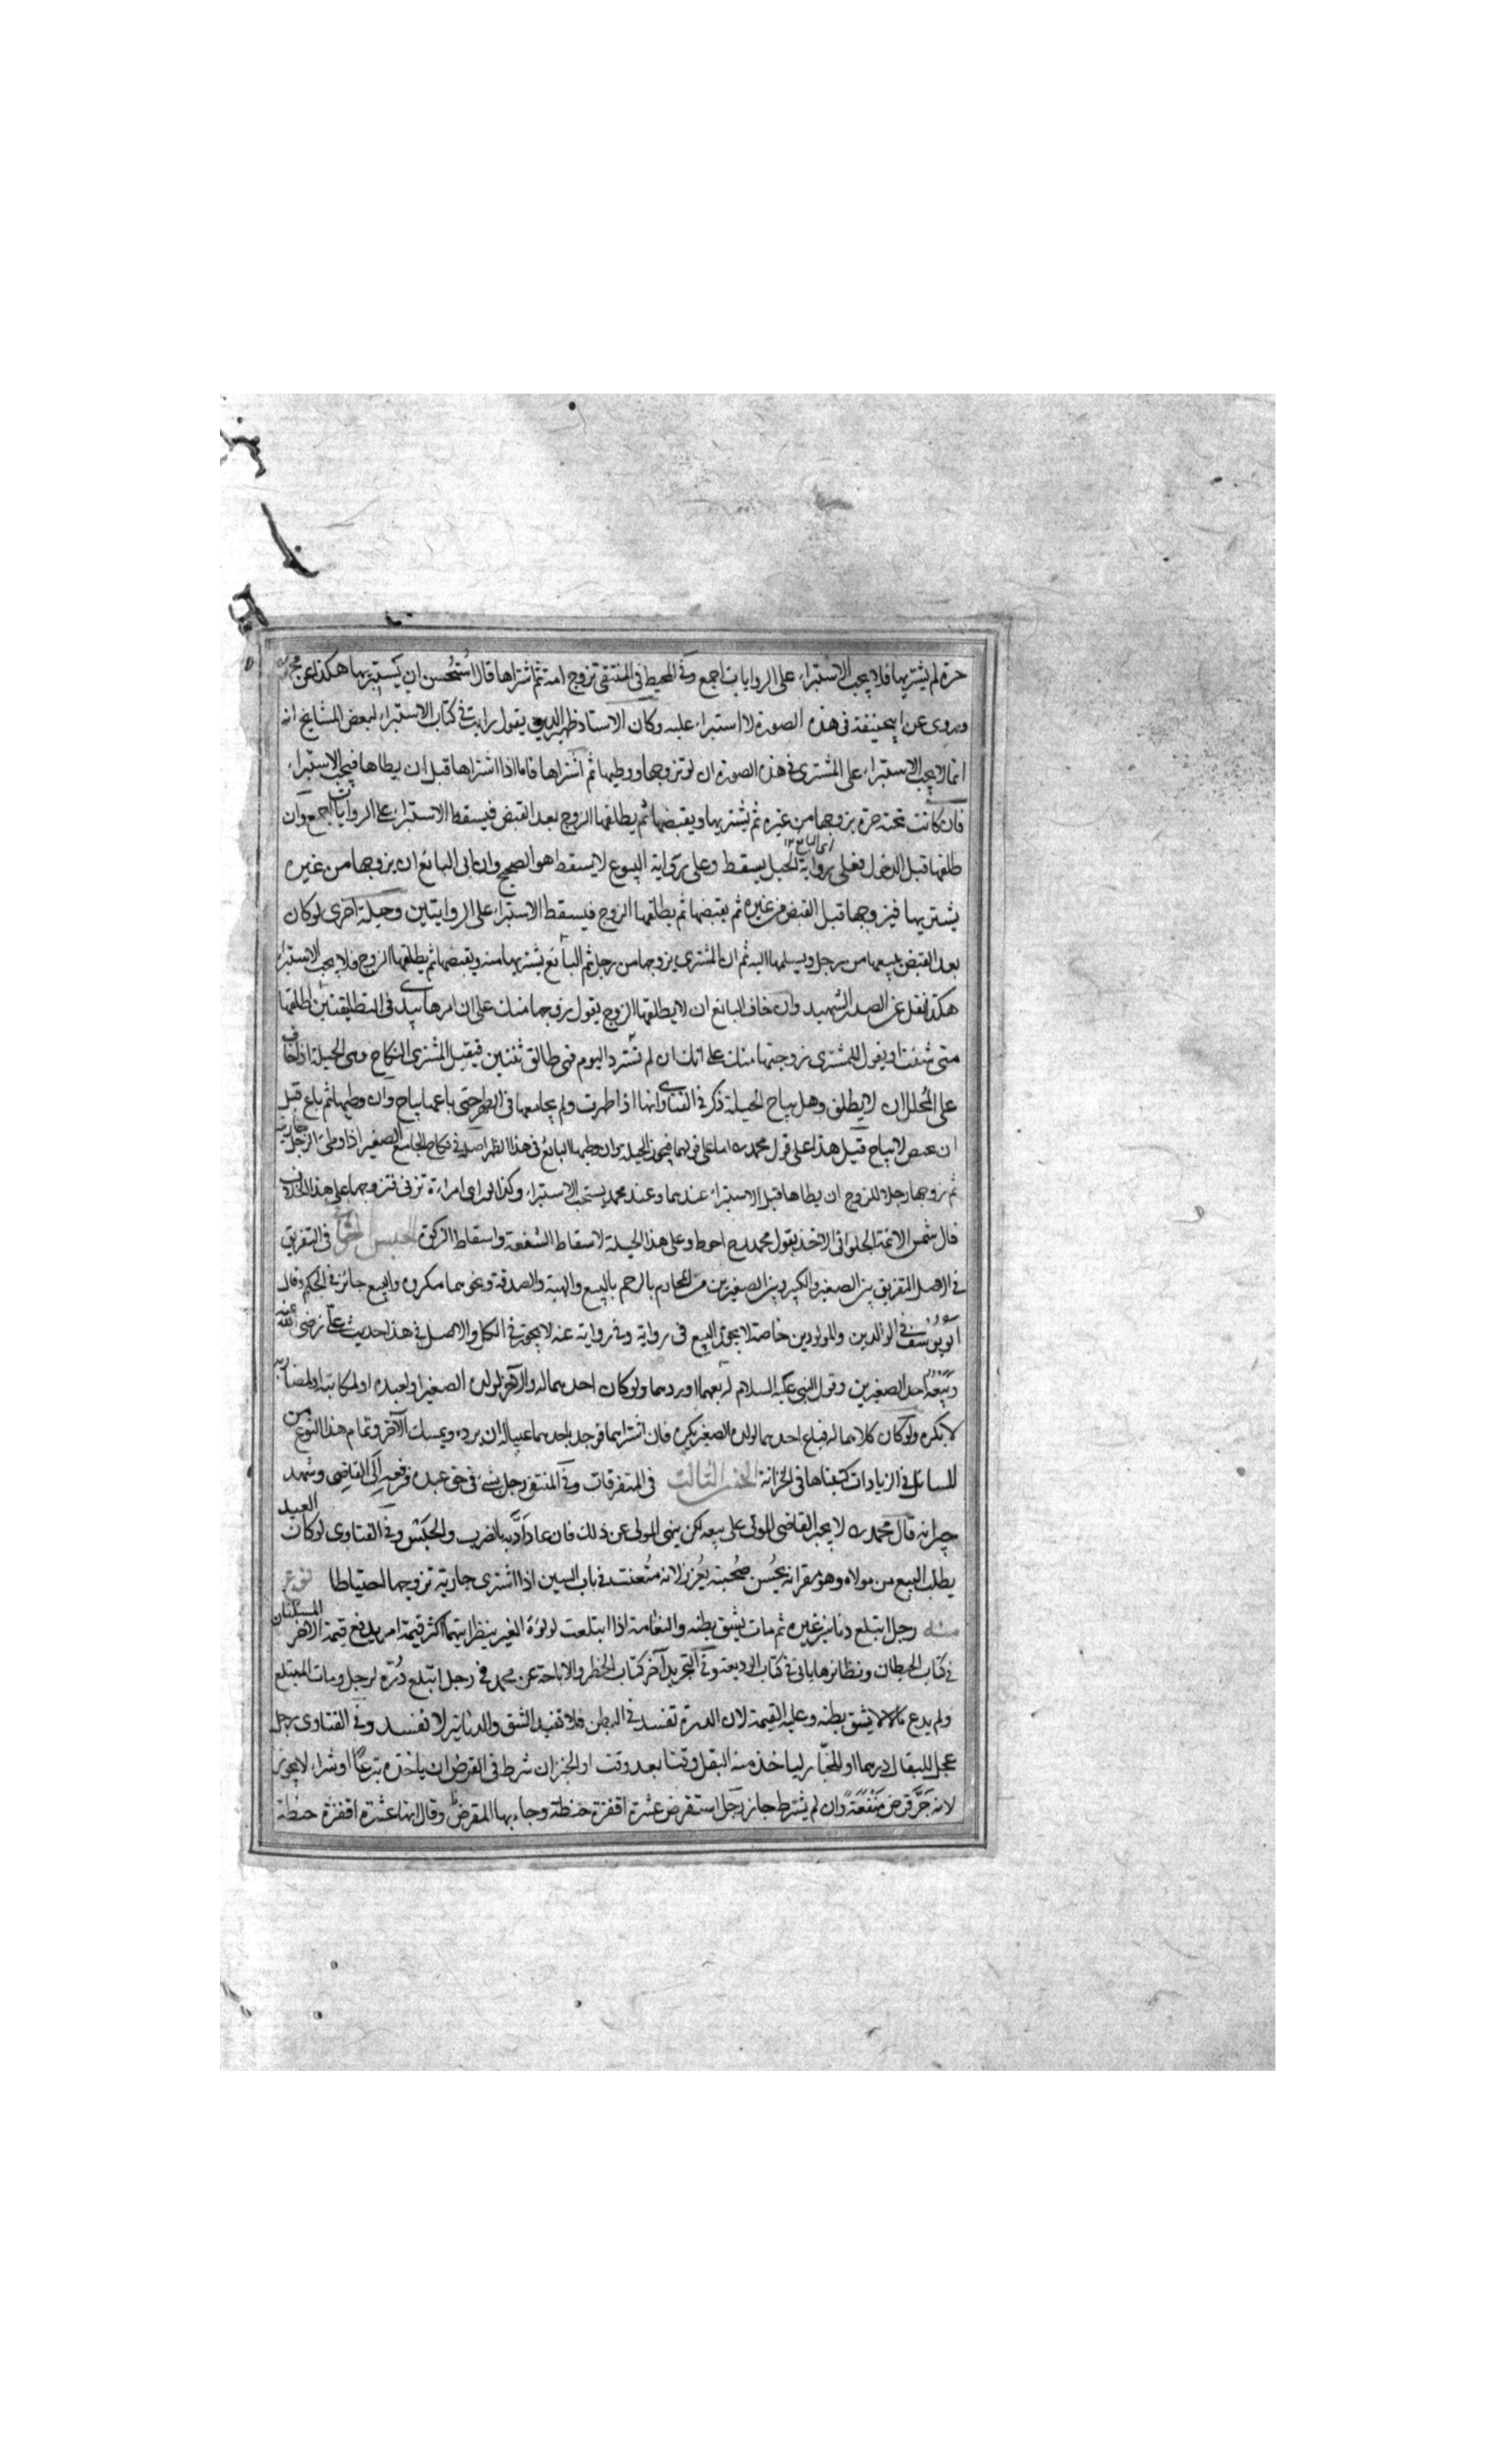 حرة لم يشتريها فلا يجب الاستبراء على الروايات اجمع وفي المحيط في المنتقى تزوج امة ثم اشتراها قال استحسن ان يستبريها هكذا عن محمد
وروى عن ابيحنيفة في هذه الصورة لا استبراء عليه وكان الاستاد ظهير الدين يقول رايت في كتاب الاستبراء لبعض المشايخ انه
انما لا يجب الاستبراء على المشترى في هذه الصورة ان لو تزوجها ووطيها ثم اشتراها فاما اذا اشتراها قبل ان يطاها فيجب الاستبراء
فان كانت تحته حرة يزوجها من غيره ثم يشتريها ويقبضها ثم يطلقها الزوج بعد القبض فيسقط الاستبراء على الروايات اجمع وان
طلقها قبل الدخول فعلى رواية الحيل يسقط وعلى رواية البيوع لا يسقط هو الصحيح وان ابى البائع ان يزوجها من غيره
يشتريها فيزوجها قبل القبض من غيره ثم يقبضها ثم يطلقها الزوج فيسقط الاستبراء على الروايتين وحيلة اخرى لو كان
بعد القبض يبيعها من رجل ويسلمها اليه ثم ان المشترى يزوجها من رجل ثم البائع يشتريها منه ويقبضها ثم يطلقها الزوج فلا يجب الاستبراء
هكذا نقل عن الصدر الشهيد وان خاف البائع ان لا يطلقها الزوج يقول زوجها منك على ان امرها بيدى في التطليقتين اطلقها
متى شئت او يقول للمشترى زوجتها منك على انك ان لم تشترد اليوم فهى طالق ثنتين فيقبل المشترى النكاح وهى الحيلة اذا خاف
على المحلل ان لا يطلق وهل يباح الحيلة ذكر في الفتاوى انها اذا طهرت ولم يجامعها في الطهر حتى باعها يباح وان وطيها ثم باع قبل
ان تحيض لا يباح قيل هذا على قول محمد اما على قولهما فيجوز الحيلة وان وطيها البائع في هذا الطهر اصله في نكاح الجامع الصغير اذا وطئ الرجل جاريته
ثم زوجها رجلا للزوج ان يطاها قبل الاستبراء عندهما وعند محمد يستحب الاستبراء وكذا لو راى امراءة تزنى فتزوجها على هذا الخلاف
قال شمس الائمة الحلوانى الاخذ بقول محمد رح احوط وعلى هذا الحيلة لاسقاط الشفعة واسقاط الزكوة الجنس في التفريق
في الاصل التفريق بين الصغير والكبير وبين الصغيرين من المحارم بالرحم بالبيع والهبة والصدقة ونحوهما مكروه والبيع جائز في الحكم وقال
ابو يوسف في الوالدين والمولودين خاصة لا يجوز البيع في رواية وفي رواية عنه لا يجوز في الكل والاصل في هذا حديث على رضى الله عنه
وبيعه احد الصغيرين وقول النبى عليه السلام له بعهما او ردهما ولو كان احدهما له والاخر لولده الصغير او لعبده او لمكاتبه او لمضاربه
لا يكره ولو كان كلاهما له فباع احدهما لولده الصغير يكره فان اشتراهما فوجد باحدهما عيبا له ان يرده ويمسك الآخر وتمام هذا النوع من
المسائل في الزيادات كتبناها في الخزانة الجنس الثالث في المتفرقات وفي المنتقى رجل يسئ في حق عبده فرفعه الى القاضى وشهد
جيرانه قال محمد لا يجبر القاضى المولى على بيعه لكن ينهى المولى عن ذلك فان عاد ادبه بالضرب والحبس وفي الفتاوى لو كان العبد
يطلب البيع من مولاه وهو مقر انه يحسن صحبته يعزر لانه متعنت في باب السين اذا اشترى جارية تزوجها احتياطا نوع
منه رجل ابتلع دنانير غيره ثم مات يشق بطنه والنعامة اذا ابتلعت لؤلؤة الغير ينظر ايتهما اكثر قيمة امر بدفع قيمة الاخر المسئلتان
في كتاب الحيطان ونظائرها ياتى في كتاب الوديعة وفي التجريد آخر كتاب الحظر والاباحة عن محمد في رجل ابتلع درة لرجل ومات المبتلع
ولم يدع مالا لا يشق بطنه وعليه القيمة لان الدرة تفسد في البطن فلا تفيد الشق والدنانير لا تفسد وفي الفتاوى رجل
عجل للبقال درهما او للخباز لياخذ منه البقل وقتا بعد وقت او الخبز ان شرط في القرض ان ياخذه تبرعا او شراء لا يجوز
لانه جر قرض منفعة وان لم يشترط جاز رجل استقرض عشرة اقفزة حنطة وجاء بها المقرض وقال انها عشرة اقفزة حنطة